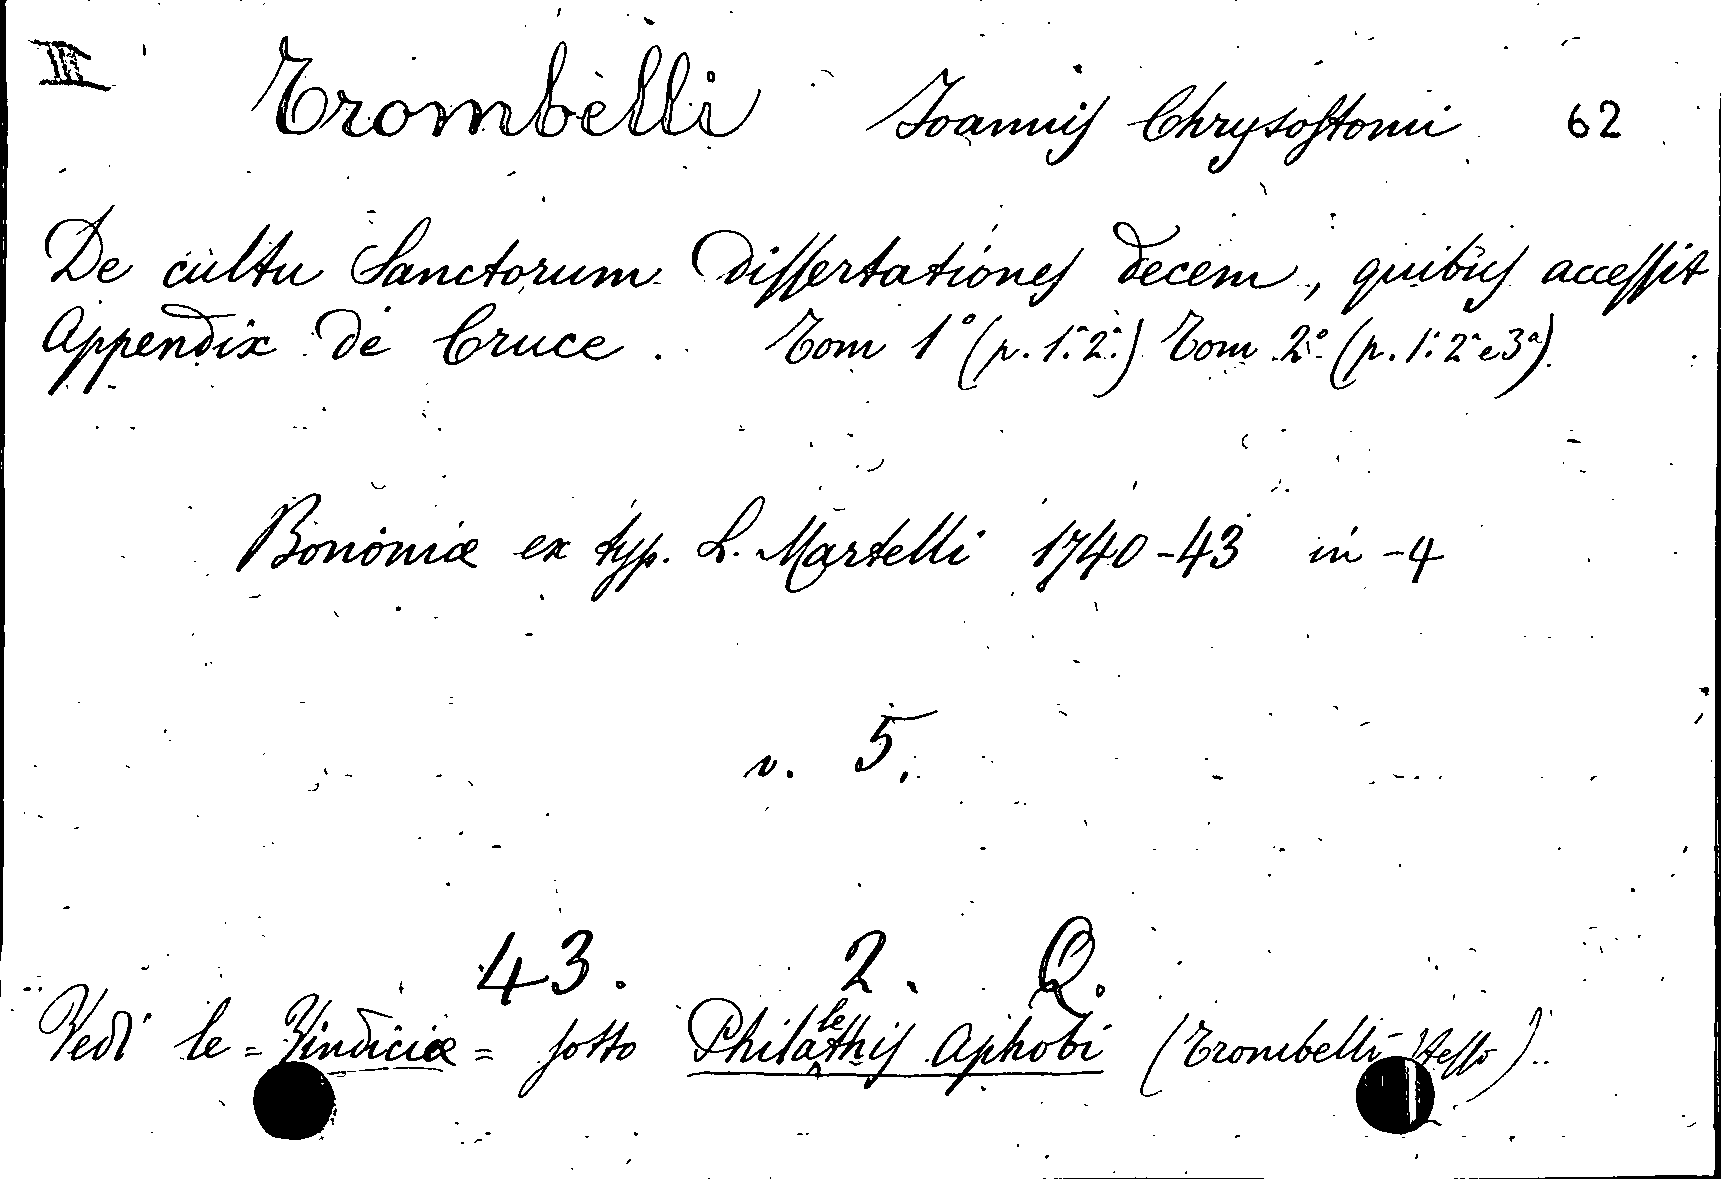 III Trombelli Joannis Chrysostomi 62
De cultu Sanctorum Dissertationes decem, quibus accessit
Appendix de Cruce. Tom 1° (p. 1ª 2ª) Tom 2° (p. 1ª 2ª e 3ª)
Bononiæ ex typ. L. Martelli 1740-43 in-4
v. 5.
43. 2. Q.
Vedi le = Vindiciæ = sotto Philalethis Aphobi (Trombelli stesso).